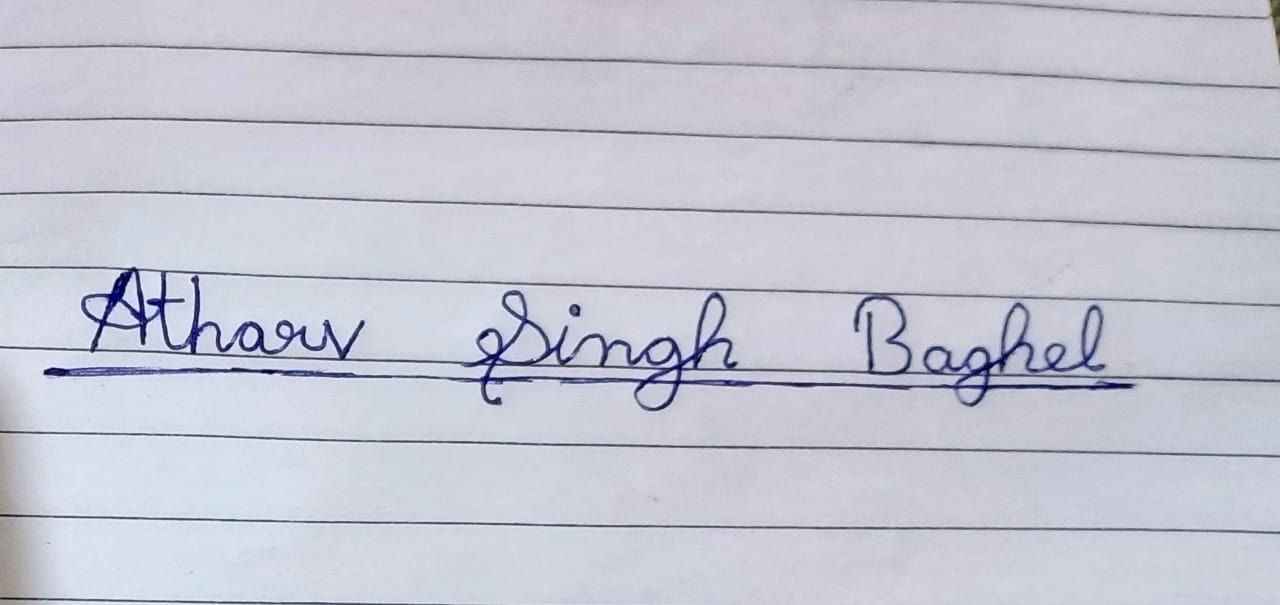 Atharv Singh Baghel